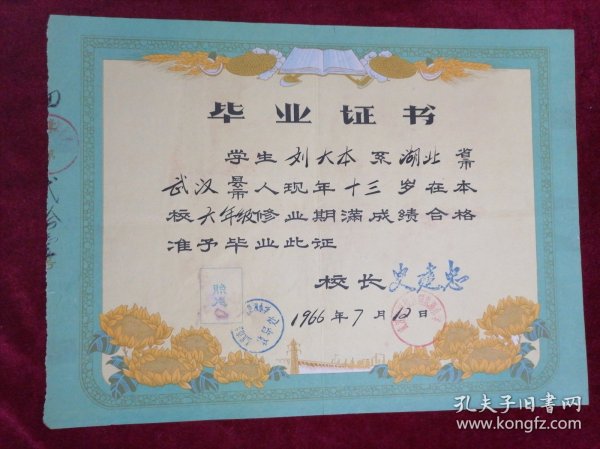 毕业证书
学生刘大本系湖北省市
武汉县市人现年十三岁在本
校六年级修业期满成绩合格
准予毕业此证
校长史建忠
1966年7月12日
孔夫子旧书网
www.kongfz.com